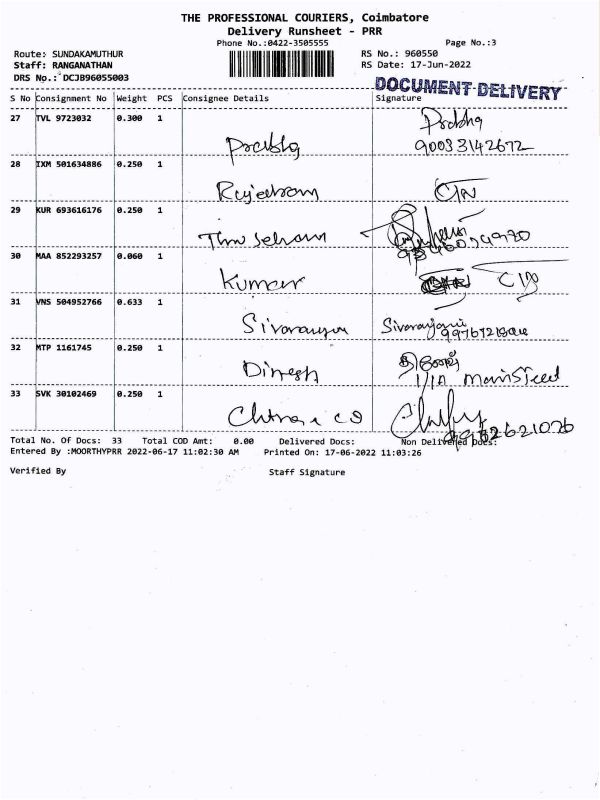 THE PROFESSIONAL COURIERS, Coimbatore
Delivery Runsheet - PRR
Phone No.:0422-3505555 Page No.:3
Route: SUNDAKAMUTHUR RS No.: 960550
Staff: RANGANATHAN RS Date: 17-Jun-2022
DRS No.: DCJB96055003
DOCUMENT DELIVERY
S No Consignment No Weight PCS Consignee Details Signature
27 TVL 9723032 0.300 1
Prabha Prabha
28 IXM 501634886 0.250 1
29 KUR 693616176 0.250 1
30 MAA 852293257 0.060 1
Kumar
31 VNS 504952766 0.633 1
32 MTP 1161745 0.250 1
Dinesh தினேஷ்
33 SVK 30102469 0.250 1
Total No. Of Docs: 33 Total COD Amt: 0.00 Delivered Docs: Non Delivered Docs:
Entered By :MOORTHYPRR 2022-06-17 11:02:30 AM Printed On: 17-06-2022 11:03:26
Verified By Staff Signature